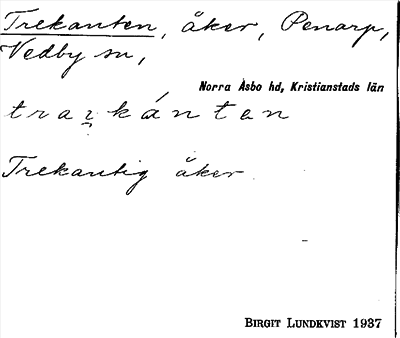 Trekanten, åker, Penarp,
Vedby sn,
Norra Åsbo hd, Kristianstads län
traɪ̯kántan
Trekantig åker
BIRGIT LUNDKVIST 1937